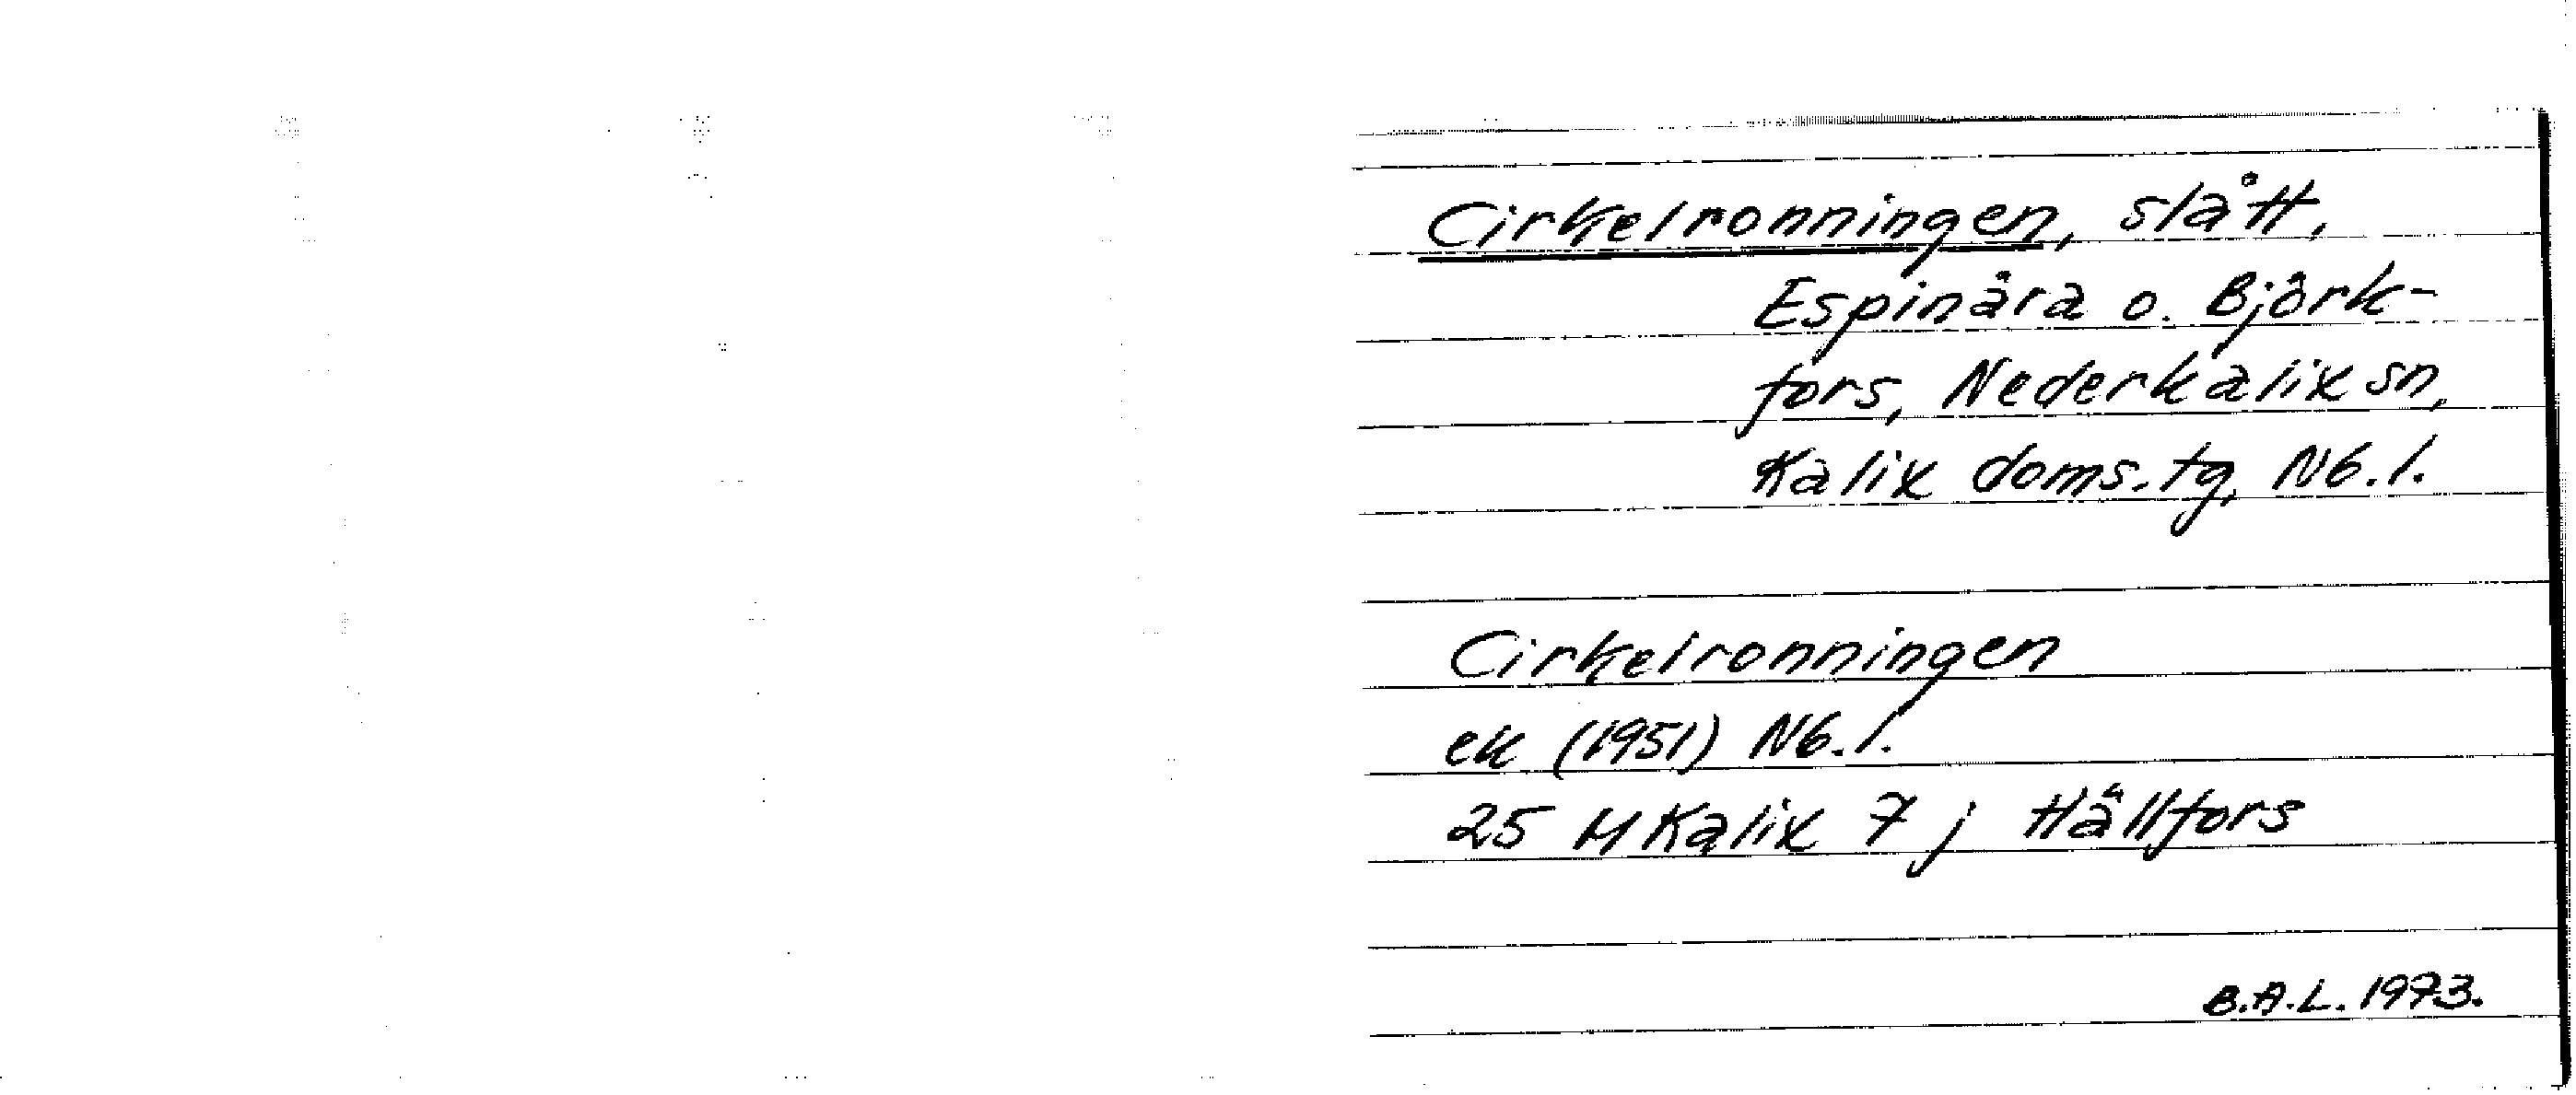 Cirkelronningen, slått,
Espinära o. Björk-
fors, Nederkalix sn,
Kalix doms.tg, Nb.l.
Cirkelronningen
ek (1951) Nb.l.
25 M Kalix 7 j Hällfors
B.A.L. 1973.